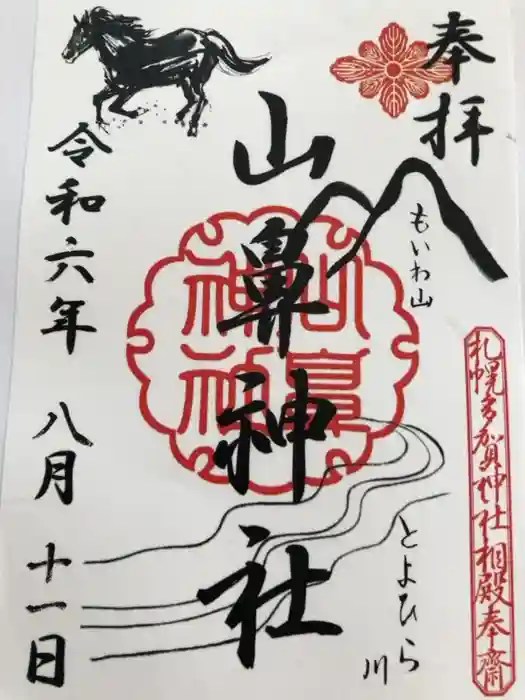 奉拝
もいわ山
札幌多賀神社相殿奉齋
山鼻神社
山鼻神社
とよひら川
令和六年 八月 十一日